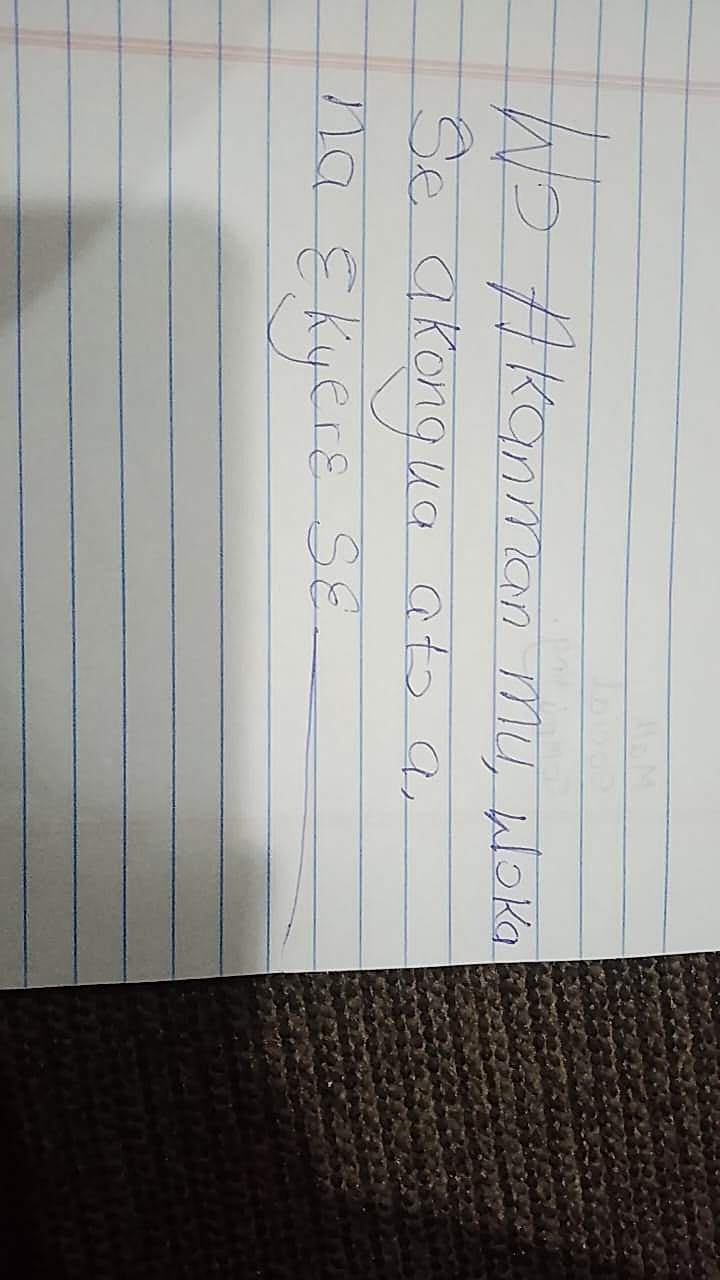 Wɔ Akanman mu, woka
Se akongua atɔ a,
na Ɛkyerɛ sɛ